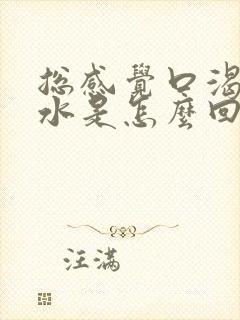 总感覺口渴
水是怎麼回
汪满